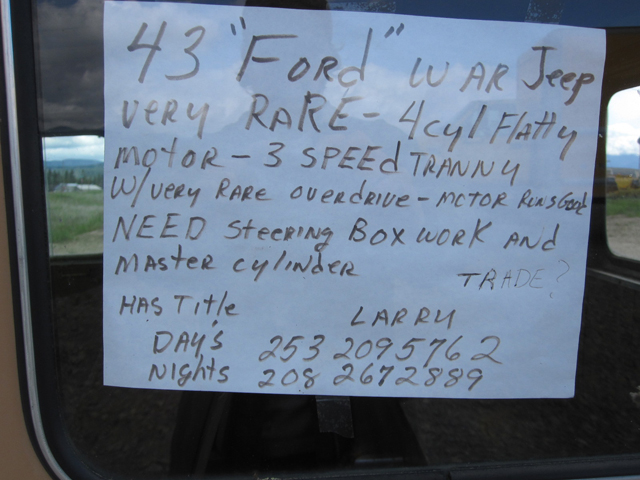 43 "Ford" WAR Jeep
very RARE - 4cyl Flatty
motor - 3 SPEEd TRANNY
W/very RARE overdrive - motor Runs Good
NEED Steering Box work And
Master cylinder
TRADE?
HAS Title
LARRY
DAY's 253 2095762
Nights 208 2672889